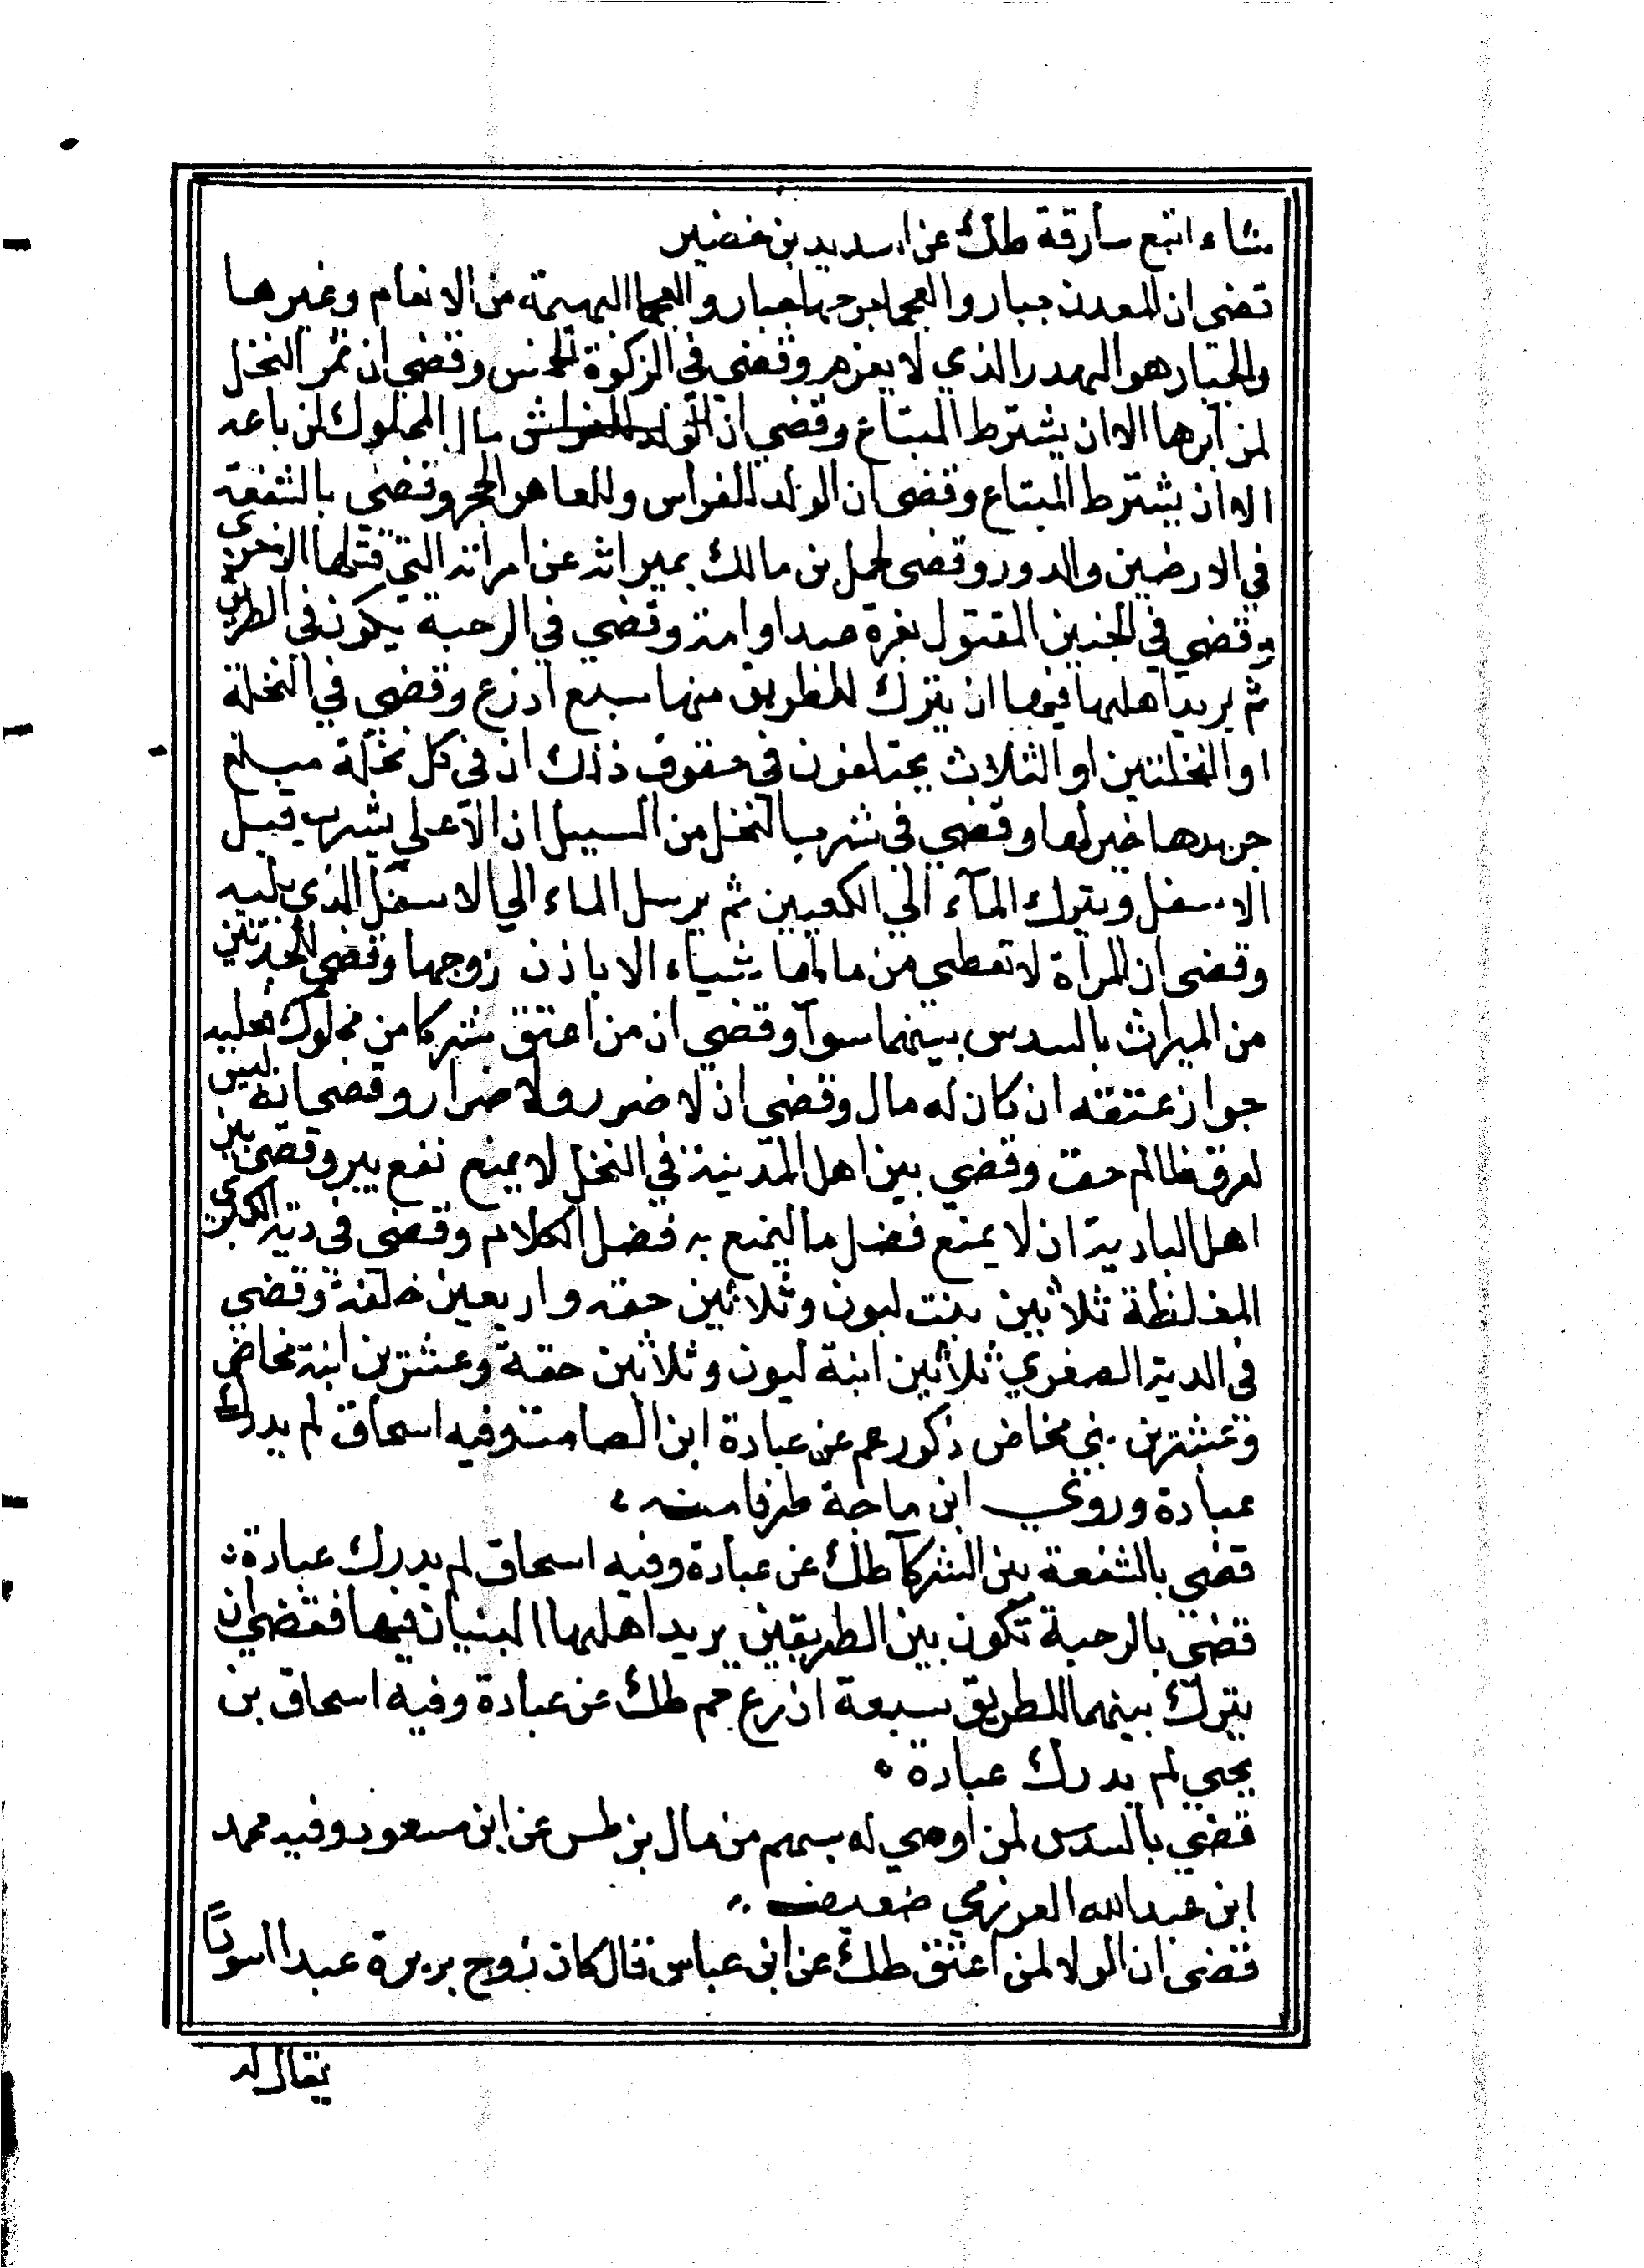 شاء اتبع سارقة طك عن اسديد بن خضير
قضى ان المعدن جبار والعجما جرحها جبار والعجما البهيمة من الانعام وغيرها
والجبار هو الهدر الذي لا يغرم وقضي في الركوة الخمس وقضي ان ثمر النخل
لمن ابرها الا ان يشترط المبتاع وقضي ان الولد للفراش مال المملوك لمن باعه
الا ان يشترط المبتاع وقضى ان الولد للفراس وللعاهر الحجر وقضى بالشفعة
في الارضين والدور وقضى لحمل بن مالك بميراثه عن امراته التي قتلها الاخرى
وقضي في الجنين المقتول بغرة عبد او امة وقضي في الرحبة يكون في الطريق
ثم يريد اهلها فيها ان يترك للطريق منها سبع اذرع وقضي في النخلة
او النخلتين او الثلاث يختلفون في حقوق ذلك ان في كل نخلة مبلغ
جريدها خير لها وقضي في شرب النخل من السيل ان الاعلى يشرب قبل
الاسفل ويترك المآء الي الكعبين ثم يرسل الماء الي الاسفل الذي يليه
وقضى ان المراة لا تعطي من مالها شياء الا باذن زوجها وقضي للجدتين
من الميراث بالسدس بينهما سوآ وقضي ان من اعتق شركا من مملوك فعليه
جواز عتقه ان كان له مال وقضي ان لا ضرر ولا ضرار وقضى انه ليس
لعرق ظالم حق وقضي بين اهل المدينة في النخل لا يمنع نفع بير وقضى بين
اهل البادية ان لا يمنع فضل ما ليمنع به فضل الكلام وقضي في دية الكبرى
المغلظة ثلاثين بنت لبون وثلاثين حقه واربعين خلفة وقضي
في الدية الصغري ثلاثين ابنة لبون وثلاثين حقة وعشرين ابنة مخاض
وعشرين بني مخاض ذكور عم عن عبادة ابن الصامت وفيه اسحاق لم يدرك
عبادة وروي ابن ماجة طرفا منه
قضي بالشفعة بين الشركآ طك عن عبادة وفيه اسحاق لم يدرك عبادة
قضي بالرحبة تكون بين الطريقين يريد اهلها البنيان فيها فقضي ان
يترك بينهما للطريق سبعة اذرع حم طك عن عبادة وفيه اسحاق بن
يحيي لم يدرك عبادة
قضي بالسدس لمن اوصي له بسهم من مال بز طس عن ابن مسعود وفيه محمد
ابن عبد الله العرزمي ضعيف
قضى ان الولا لمن اعتق طك عن ابن عباس قال كان زوج بريرة عبدا اسودا
يقال له